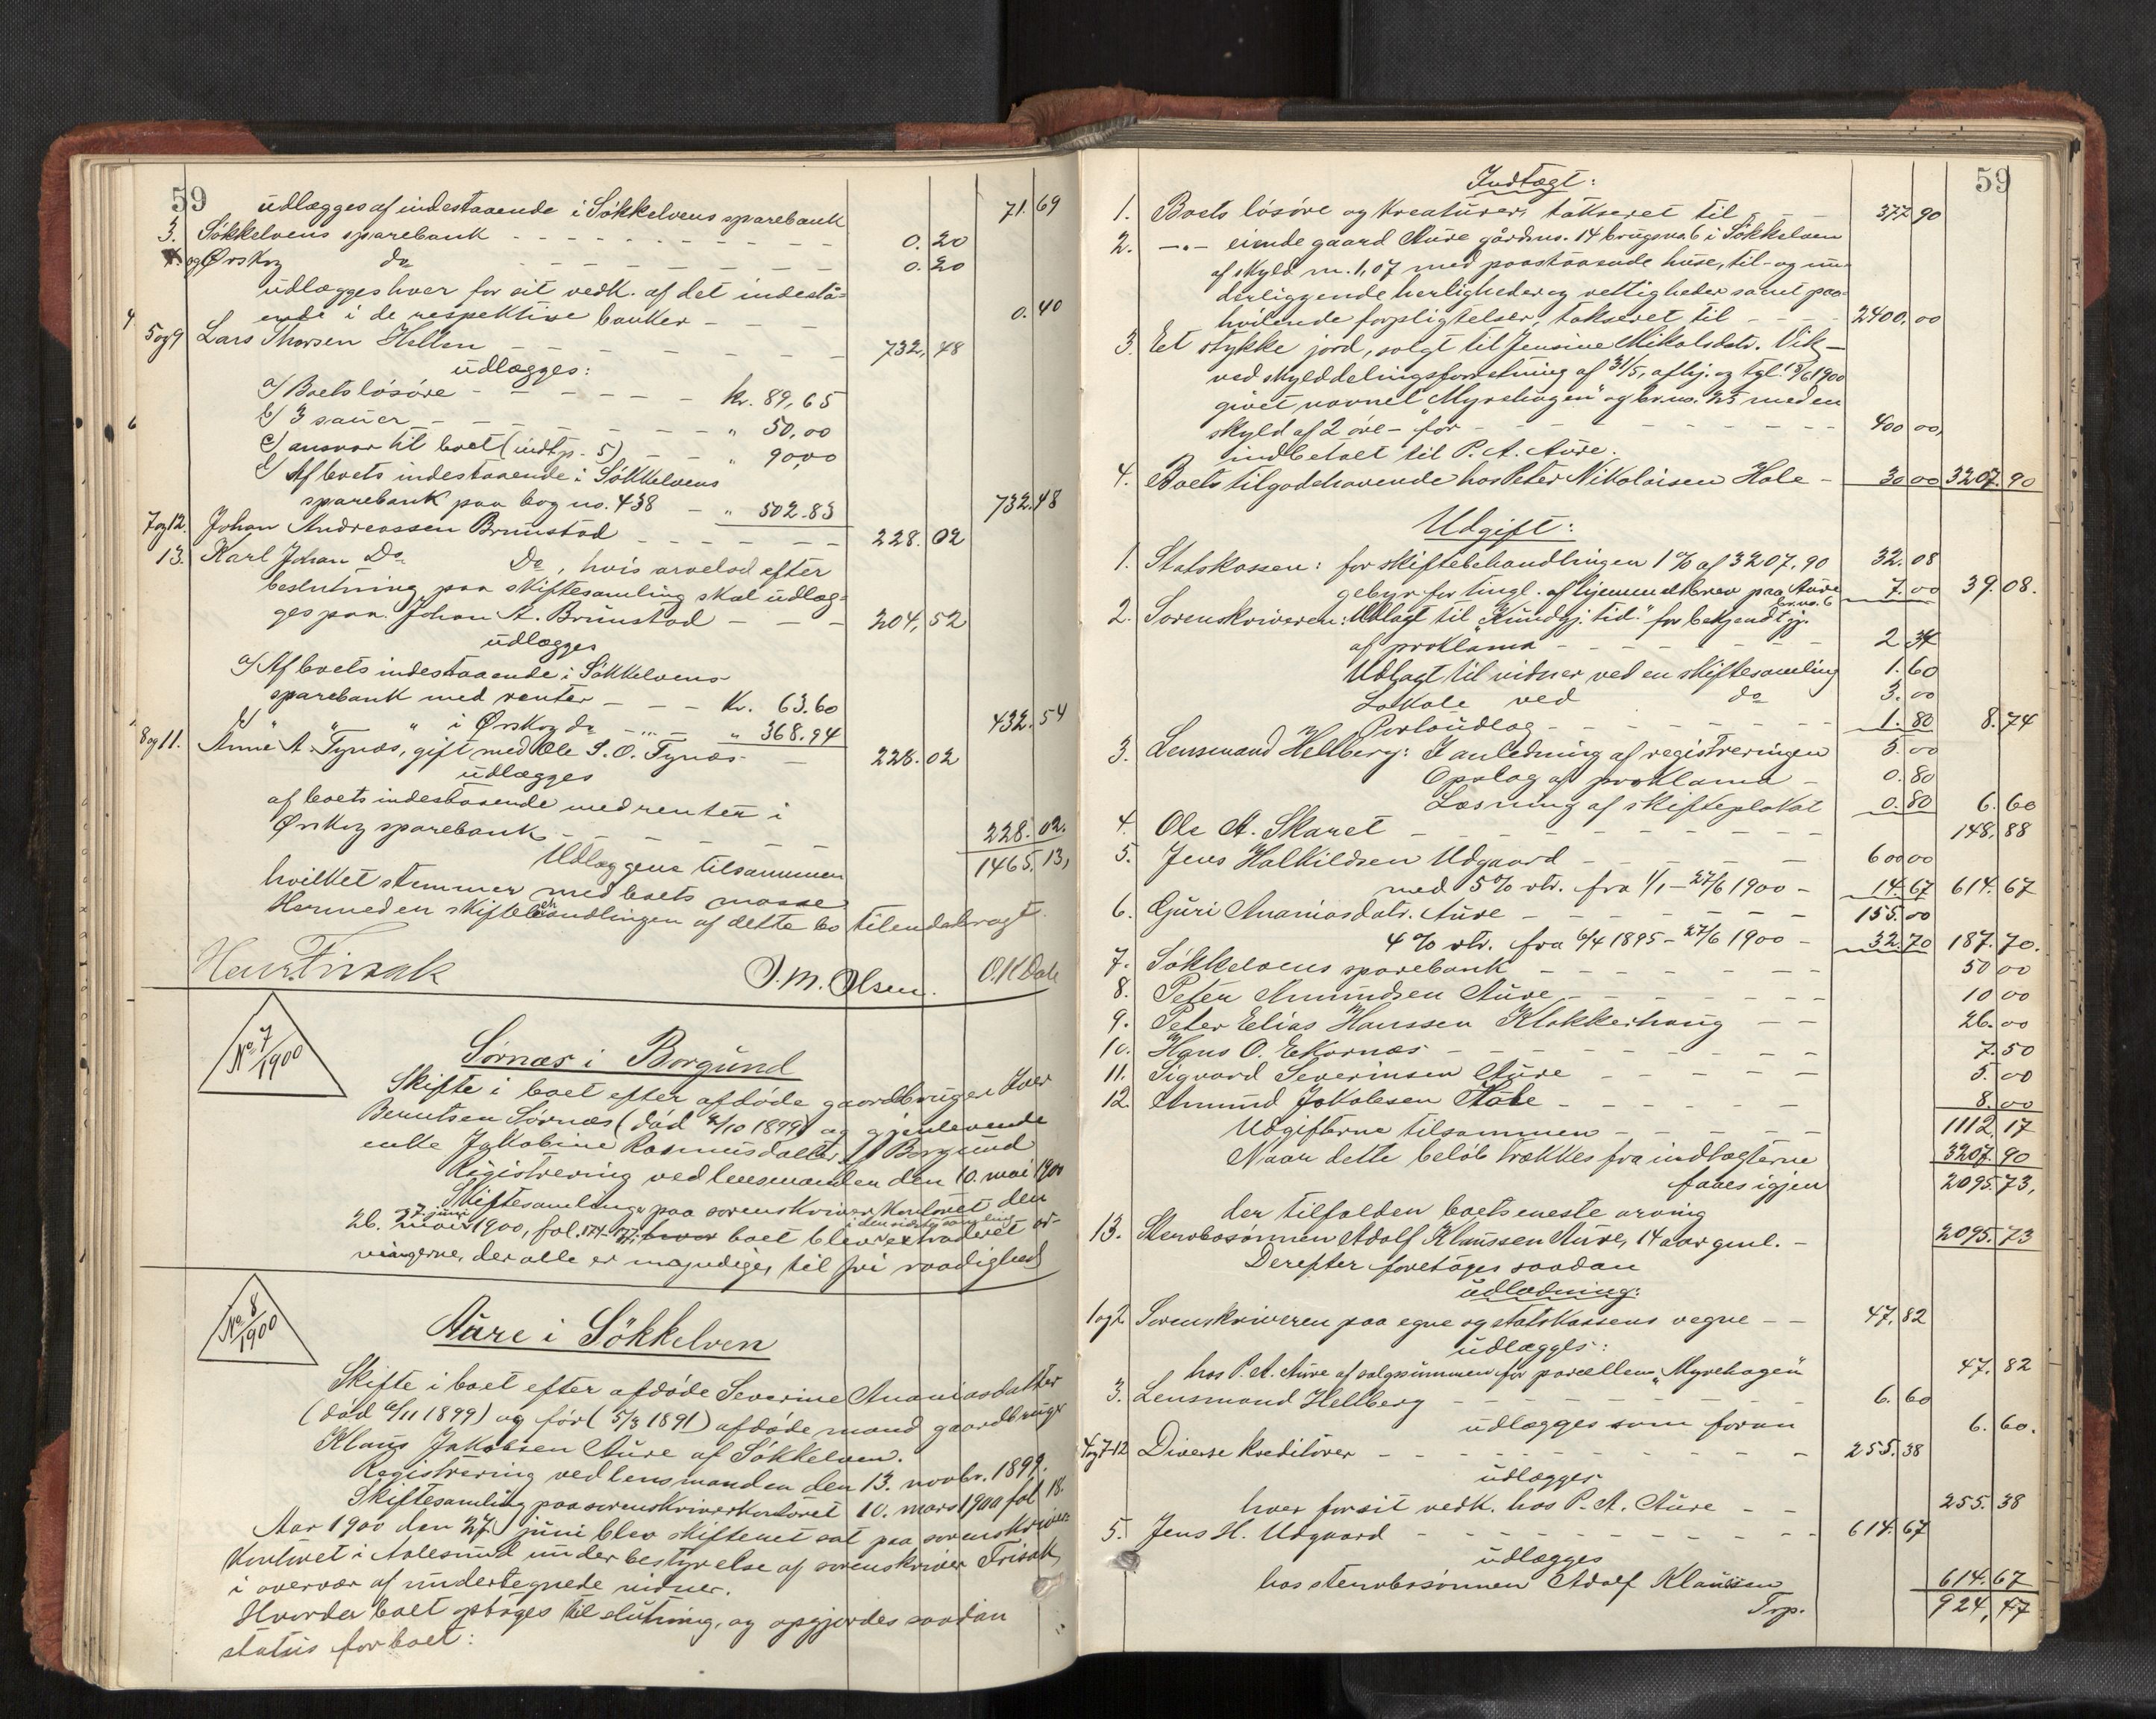 59
udlægges af indestaaende i Søkkelvens sparebank 71.69
3. Søkkelvens sparebank - - - 0.20
og Ørskog do - - - 0.20
udlægges hver for sit vedk. af det indestå-
ende i de respektive banker - - - 0.40
5og9 Lars Thorsen Hellen - - - 732,48
udlægges:
a/ Boets løsøre - - - kr. 89,65
b/ 3 sauer - - - " 50,00
c/ ansvar til boet (indtp. 5) - - " 90,00
d/ Af boets indestaaende i Søkkelvens
sparebank paa bog no. 438 - " 502.83 732.48
7og12. Johan Andreassen Brunstad - - - 228.02
13. Karl Johan Do Do, hvis arvelod efter
beslutning paa skiftesamling skal udlæg-
ges paa Johan A. Brunstad - - - 204,52
udlægges
a/ Af boets indestaaende i Søkkelvens
sparebank med renter - - - Kr. 63.60
b/ " " " i Ørskog do - " - " 368.94 432.54
8og11. Anne A. Tynæs, gift med Ole S. O. Tynæs - 228.02
udlægges
af boets indestaaende med renter i
Ørskog sparebank - - - 228.02.
Udlæggene tilsammen 1465.13,
hvilket stemmer med boets masse
Hermed er skiftebehandlingen af dette bo tilendebragt.
J. M. Olsen. O. K. Dale
No. 7/1900
Sørnæs i Borgund
Skifte i boet efter afdøde gaardbruger Iver
Berntsen Sørnæs (død /10 1899) og gjenlevende
enke Jakobine Rasmusdatter af Borgund
Registrering ved lensmanden den 10. mai 1900
Skiftesamlinger paa sorenskriverkontoret den
27. juni i den sidste samling
26. mai 1900, fol. boet blev extraderet ar-
vingerne, der alle er myndige, til fri raadighed
No. 8/1900
Aure i Søkkelven
Skifte i boet efter afdøde Severine Ananiasdatter
(død 6/11 1899) og før (5/3 1891) afdøde mand gaardbruger
Klaus Jakobsen Aure af Søkkelven.
Registrering ved lensmanden den 13. novbr. 1899.
Skiftesamling paa sorenskriverkontoret 10. mars 1900 fol 18.
Aar 1900 den 27. juni blev skifteret sat paa sorenskriver-
kontoret i Aalesund under bestyrelse af sorenskriver Frisak
i overvær af undertegnede vidner.
Hvorda boet optoges til slutning, og opgjordes saadan
status for boet:
59
Indtægt:
1. Boets løsøre og kreaturer, takseret til - - 377.90
2. -"- eiende gaard Aure gårdsno. 14 brugsno. 6 i Søkkelven
af skyld m. 1,07 med paastaaende huse, til- og un-
derliggende herligheder og rettigheder samt paa-
hvilende forpligtelser, takseret til - - - 2400.00
3. Et stykke jord, solgt til Jensine Nikolsdatr. Vik -
ved skylddelingsforretning af 31/5, afhj. og tgl. 13/6 1900
givet navnet "Myrehagen" og br.no. 25 med en
skyld af 2 øre - for - - - 400.00,
indbetalt til P. A. Aure.
4. Boets tilgodehavende hos Peter Nikolaisen Hole - 30.00 3207.90
Udgift:
1. Statskassen: for skiftebehandlingen 1% af 3207.90 32.08
gebyr for tingl. af hjemmelsbrev paa Aure br.no. 6 7.00 39.08.
2. Sorenskriveren: Udlagt til "Kundgj. tid." for bekjendtgj.
af proklama - - - 2.34
Udlagt til vidner ved en skiftesamling 1.60
Lokale ved do 3.00
Portoudlæg - - - 1.80 8.74
3. Lensmand Hellberg: I anledning af registreringen 5.00
Opslag af proklama - 0.80
Læsning af skifteplakat 0.80 6.60
4. Ole A. Skaret - - - 148.88
5. Jens Halkildsen Udgaard - - - 600.00
med 5% rtr. fra 1/1 - 27/6 1900 - 14.67 614.67
6. Guri Ananiasdatr. Aure - - - 155.00
4% rtr. fra 6/4 1895 - 27/6 1900 - 32.70 187.70.
7. Søkkelvens sparebank - - - 50.00
8. Peter Amundsen Aure - - - 10.00
9. Peter Elias Hanssen Klokkerhaug - - 26.00
10. Hans O. Ekornæs - - - 7.50
11. Sigvard Severinsen Aure - - - 5.00
12. Amund Jakobsen Hole - - - 8.00
Udgifterne tilsammen - - - 1112.17
Naar dette beløb trækkes fra indtægterne 3207.90
faaes igjen 2095.73,
der tilfalden boets eneste arving
13. Stervbosønnen Adolf Klaussen Aure, 14 aar gml. - 2095.73
Derefter foretoges saadan
udlodning:
1og2 Sorenskriveren paa egne og statskassens vegne - - 47,82
udlægges:
hos P. A. Aure af salgssummen for parcellen "Myrehagen" 47.82
3. Lensmand Hellberg - - - 6.60
udlægges som foran 6.60.
4og7-12 Diverse kreditorer - - - 255.38
udlægges
hver for sit vedk. hos P. A. Aure - - 255.38
5. Jens H. Udgaard - - - 614.67
udlægges
hos stervbosønnen Adolf Klaussen 614.67
Trp. 924,47